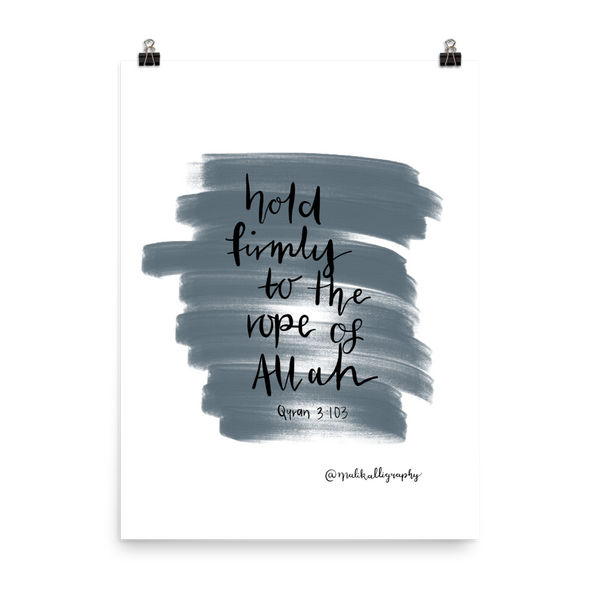 hold
firmly
to the
rope of
Allah
Quran 3:103
@malikalligraphy